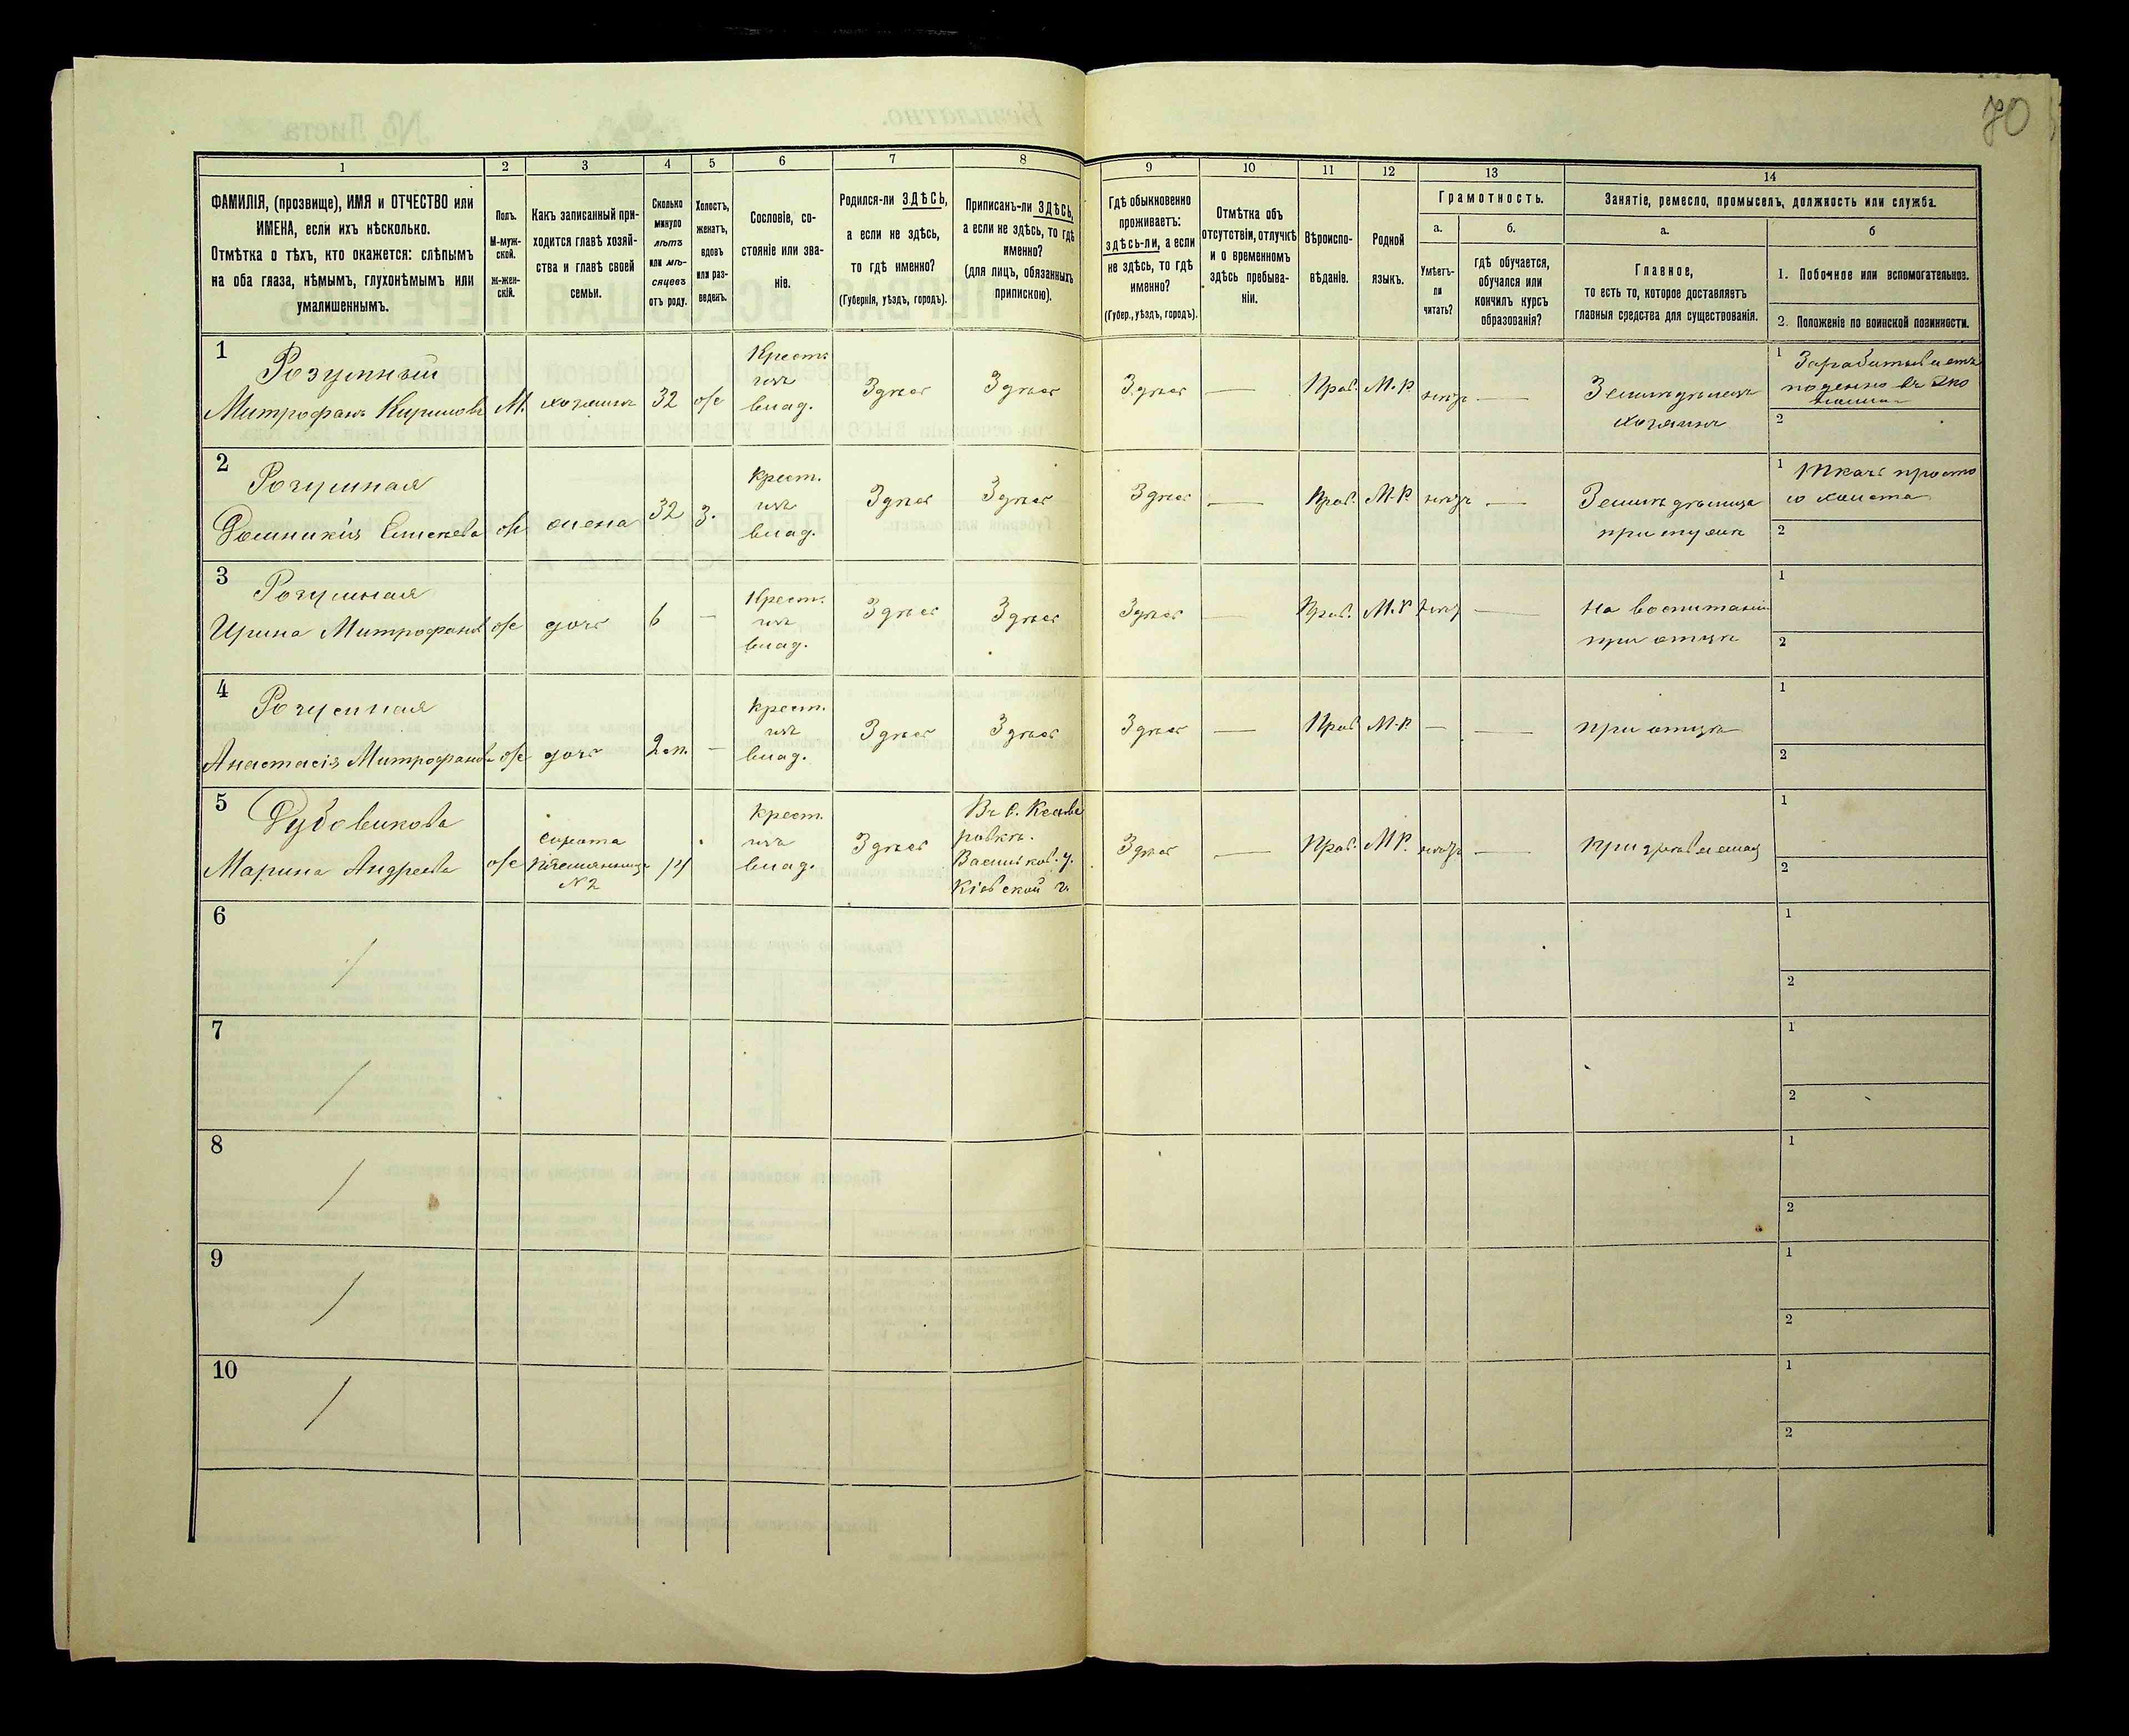 70
1
2
3
4
5
6
7
8
9
10
11
12
13
14
ФАМИЛІЯ, (прозвище), ИМЯ и ОТЧЕСТВО или
ИМЕНА, если ихъ нѣсколько.
Отмѣтка о тѣхъ, кто окажется: слѣпымъ
на оба глаза, нѣмымъ, глухонѣмымъ или
умалишеннымъ.
Полъ.
М-муж-
ской.
ж-жен-
скій.
Какъ записанный при-
ходится главѣ хозяй-
ства и главѣ своей
семьи.
Сколько
минуло
лѣтъ
или мѣ-
сяцевъ
отъ роду.
Холостъ,
женатъ,
вдовъ
или раз-
веденъ.
Сословіе, со-
стояніе или зва-
ніе.
Родился-ли ЗДѢСЬ,
а если не здѣсь,
то гдѣ именно?
(Губернія, уѣздъ, городъ).
Приписанъ-ли ЗДѢСЬ,
а если не здѣсь, то гдѣ
именно?
(для лицъ, обязанныхъ
припискою).
Гдѣ обыкновенно
проживаетъ:
здѣсь-ли, а если
не здѣсь, то гдѣ
именно?
(Губер., уѣздъ, городъ).
Отмѣтка объ
отсутствіи, отлучкѣ
и о временномъ
здѣсь пребыва-
ніи.
Вѣроиспо-
вѣданіе.
Родной
языкъ.
Грамотность.
а.
Умѣетъ-
ли
читать?
б.
гдѣ обучается,
обучался или
кончилъ курсъ
образованія?
Занятіе, ремесло, промыселъ, должность или служба.
а.
Главное,
то есть то, которое доставляетъ
главныя средства для существованія.
б
1. Побочное или вспомогательное.
2. Положеніе по воинской повинности.
1
Розумный
Митрофанъ Кириловъ
М.
хозяинъ
32
ж
Крест.
изъ
влад.
Здѣсь
Здѣсь
Здѣсь
—
Прав.
М.Р.
—
Земледѣлецъ
хозяинъ
1 Зарабатываетъ
поденно въ эко
2
2
Розумная
Домникія
ж
жена
32
З.
Крест.
изъ
влад.
Здѣсь
Здѣсь
Здѣсь
—
Прав.
М.Р.
—
при мужѣ
1 Ткачъ просто
го холста
2
3
Розумная
Ирина Митрофанов
ж
дочь
6
—
Крест.
изъ
влад.
Здѣсь
Здѣсь
Здѣсь
—
Прав.
М.Р.
—
На воспитаніи
при отцѣ
1
2
4
Розумная
Анастасія Митрофанова
ж
дочь
2 м.
—
Крест.
изъ
влад.
Здѣсь
Здѣсь
Здѣсь
—
Прав
М.Р.
—
—
при отцѣ
1
2
5
Дубовикова
Марина Андреева
ж
сирота
племянница
№2
14
Крест.
изъ
влад.
Здѣсь
Въ с. Ксаве
ровкѣ.
Васильков. у.
Кіевской г.
Здѣсь
—
Прав.
М.Р.
—
1
2
6
1
2
7
1
2
8
1
2
9
1
2
10
1
2